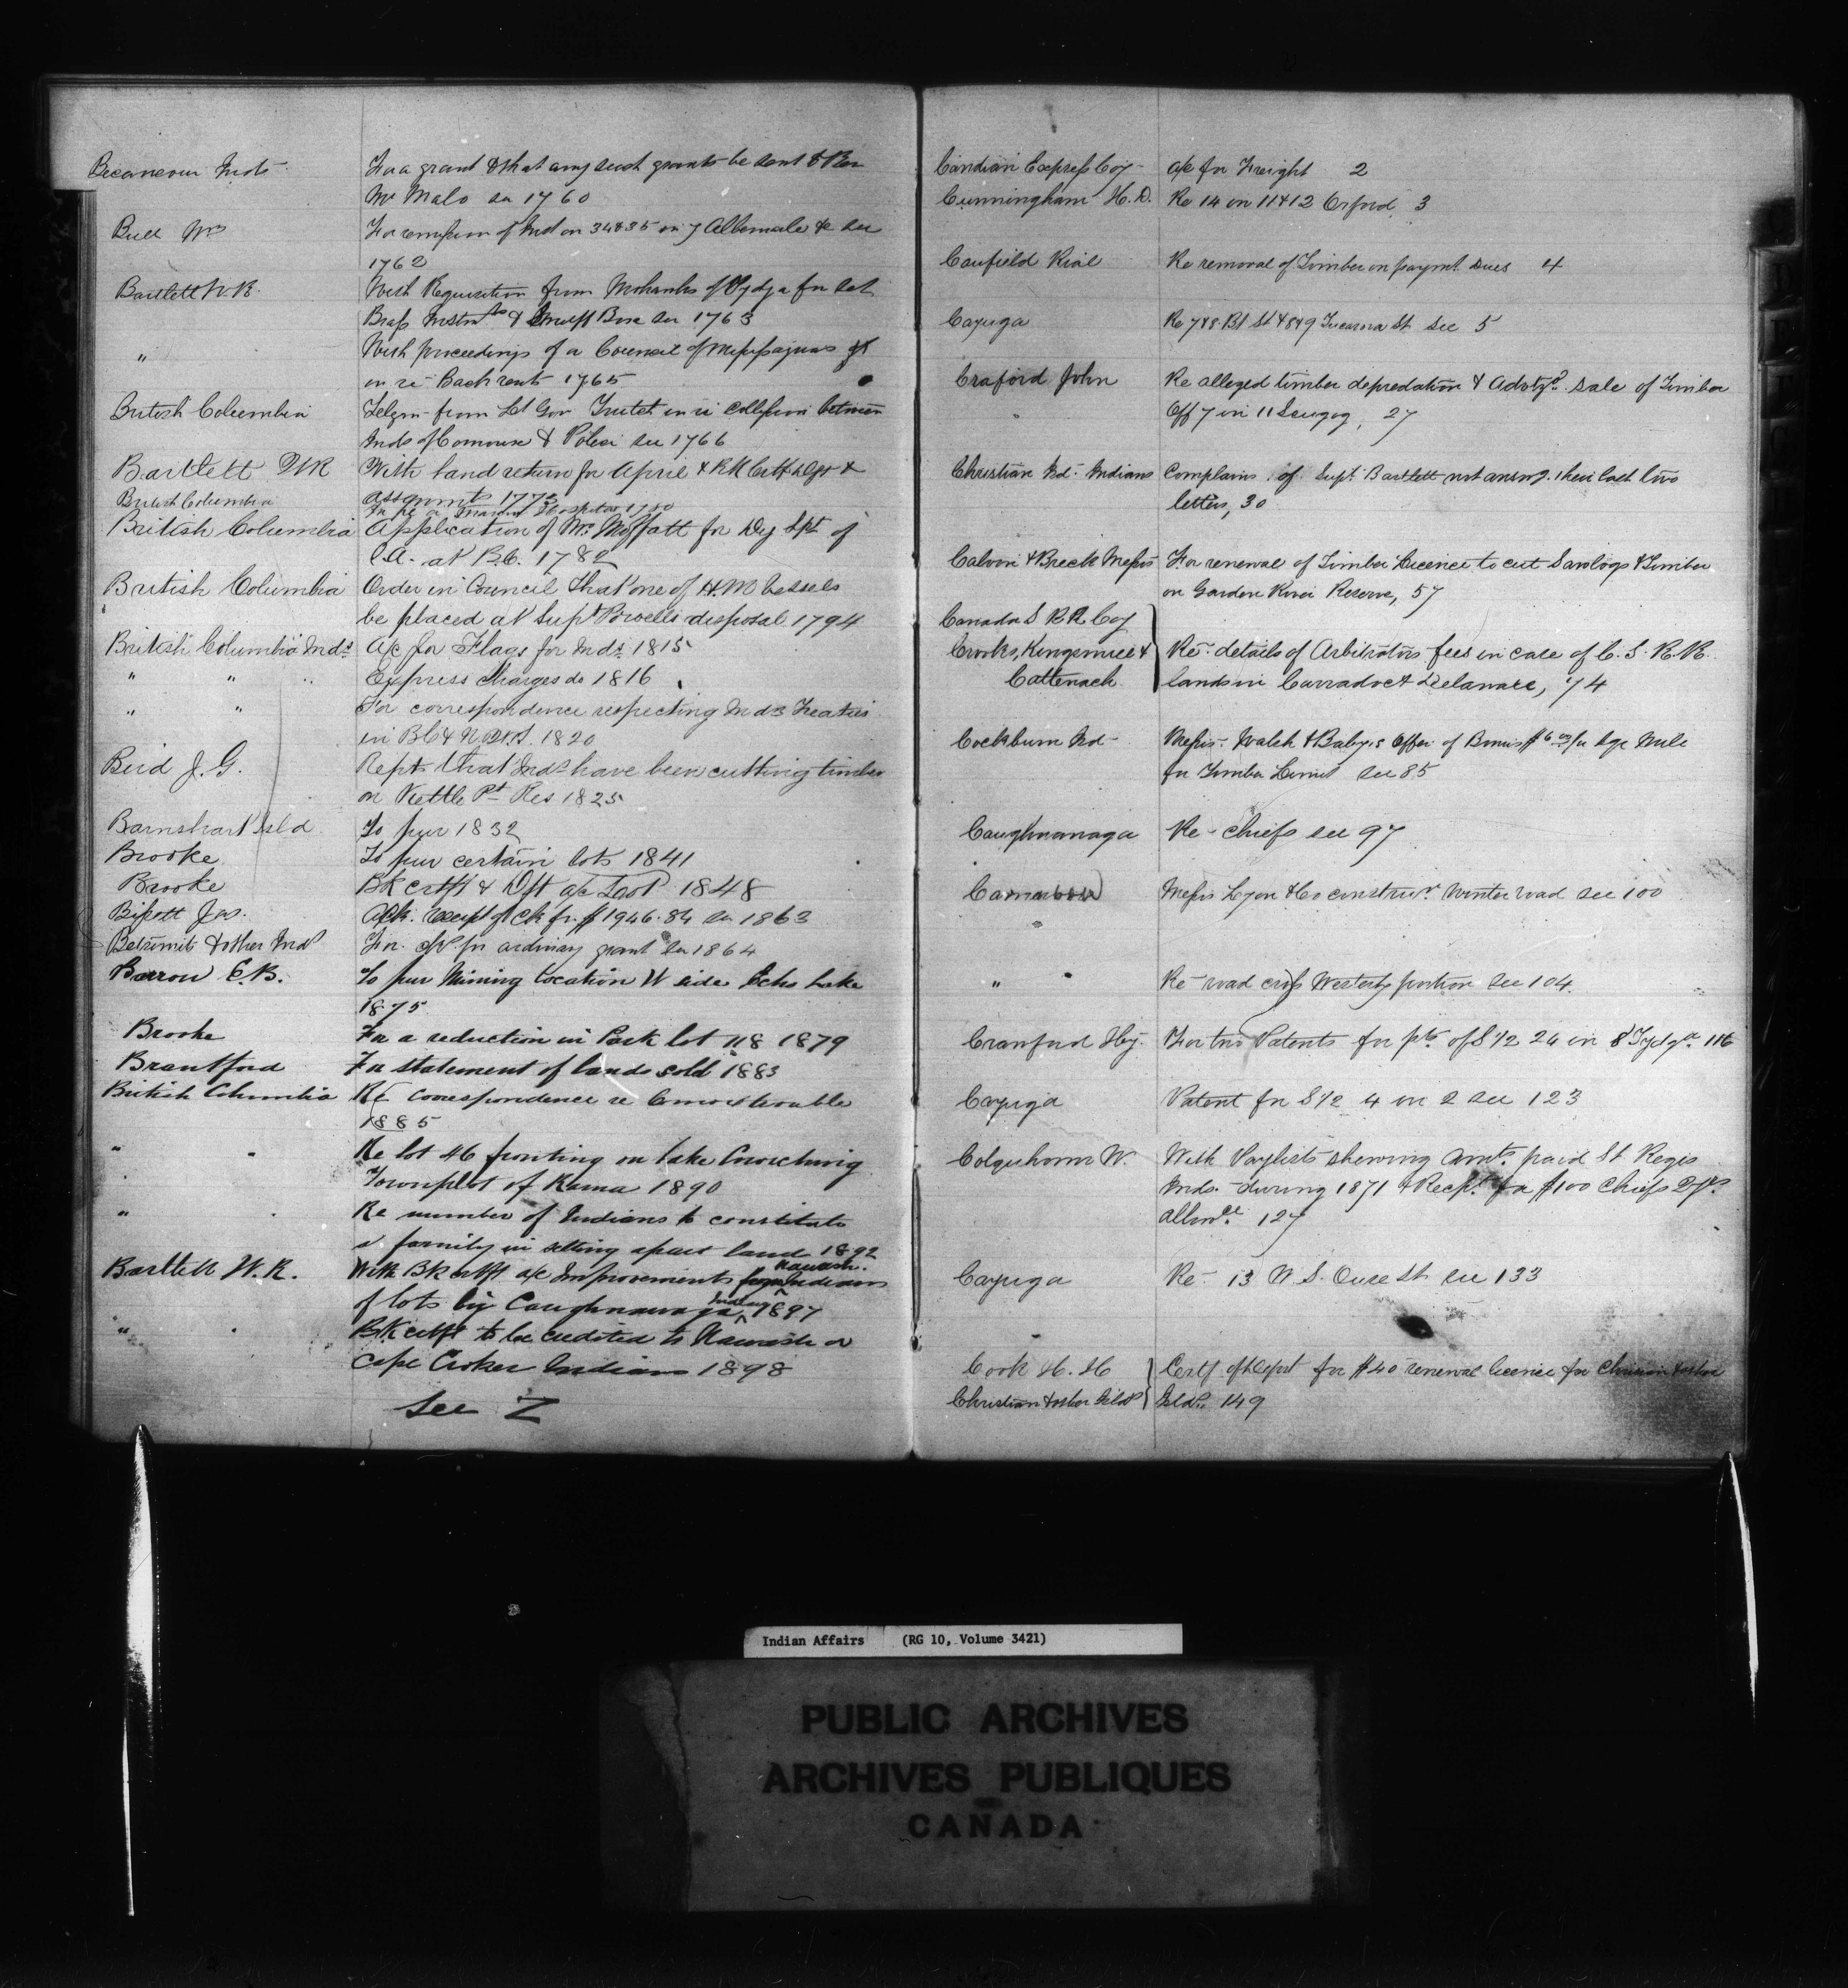 Becancour Inds For a grant & that any such grants be sent to Rev
Mr Malo see 1760
Bull Wm For rempson of Ind on 34&35 in 7 Albemarle &c see
1762
Bartlett W.R. With Requisition from Mohawks of Tydga for set
Brass Instrmts & Bass see 1763
" With proceedings of a Council of Missisaguas
in re Back rents 1765
British Columbia Telgm from Lt Gov Trutch in re collision between
Inds of Comoux & Police see 1766
Bartlett WR With land return for April & Bk Certf Dept &
British Columbia assgnmts 1773
In re a Marine Hospital 1780
British Columbia Application of Mr Moffatt for Dy Spt of
I.A. at B.C. 1782
British Columbia Order in Council that one of H.M vessels
be placed at Supt Powells disposal 1794
British Columbia Inds A/c for Flags for Inds 1815
" " " Express Charges do 1816
" " For correspondence respecting Inds Treaties
in BC & N.W.T. 1820
Bird J.G. Repts that Inds have been cutting timber
on Kettle Pt Res 1825
Barnshart Isld To pur 1832
Brooke To pur certain lots 1841
Brooke Bk certf & Dft a/c 1848
Bissett Jas. Ack. receipt of Ck fr. $1946.84 see 1863
Betsimits & other Inds For. for ordinary grant see 1864
Barron C.B. To pur Mining location W side Echo Lake
1875
Brooke For a reduction in Park lot 118 1879
Brantford For statement of lands sold 1883
British Columbia Re correspondence re Comox trouble
1885
" " Re lot 46 fronting on lake Couchicing
Townplot of Rama 1890
" " Re number of Indians to constitute
a family in setting apart land 1892
Bartlett W.R. With BK certft a/c Improvements Nawash. Indians
of lots by Caughnawaga Indians 1897
" " BK certft to be credited to Nawash or
Cape Croker Indians 1898
See Z
Candian Express Coy a/c for Freight 2
Cunningham H.D. Re 14 in 11&12 Orford, 3
Caufield Rial Re removal of Timber on paymt dues 4
Cayuga Re 7&8 St & 8&9 Tucarora St see 5
Craford John Re alleged timber depredation & advtzd sale of Timber
" Off 7 in 11 Scugog, 27
Christian Isd Indians Complains of Supt Bartlett not answg. their last two
letters, 30
Calvin & Breck Messrs For renewal of Timber Licence to cut Sawlogs & Timber
on Garden River Reserve, 57
Canada S R.R Coy
Crooks, Kingsmill & Re details of Arbitrators fees in case of C.S.R.R.
Cattenach lands in Carradoc & Delaware, 74
Cockburn Isd Messrs Walsh & Babys offer of Bonus $6 00 for Sqe Mile
for Timber Limit see 85
Caughnawaga Re chiefs see 97
Carnarvon Messrs Lyon & Co construcr. Winter road see 100
" " Re road cross Westerly portion see 104.
Cranford Hy. For two Patents for pts of S 1/2 24 in 8 Tydga 116
Cayuga Patent for S 1/2 4 in 2 see 123
Colquhoun W. With Paylists shewing amts. paid St Regis
Inds. during 1871 & Recpt for $100 Chiefs
allwce. 127
Cayuga Re 13 W.S. Ouse St see 133
Cook H. H Certf of Depst for $40 renewal licence for Christian & other
Christian & other Islds Islds. 149
Indian Affairs (RG 10, Volume 3421)
PUBLIC ARCHIVES
ARCHIVES PUBLIQUES
CANADA